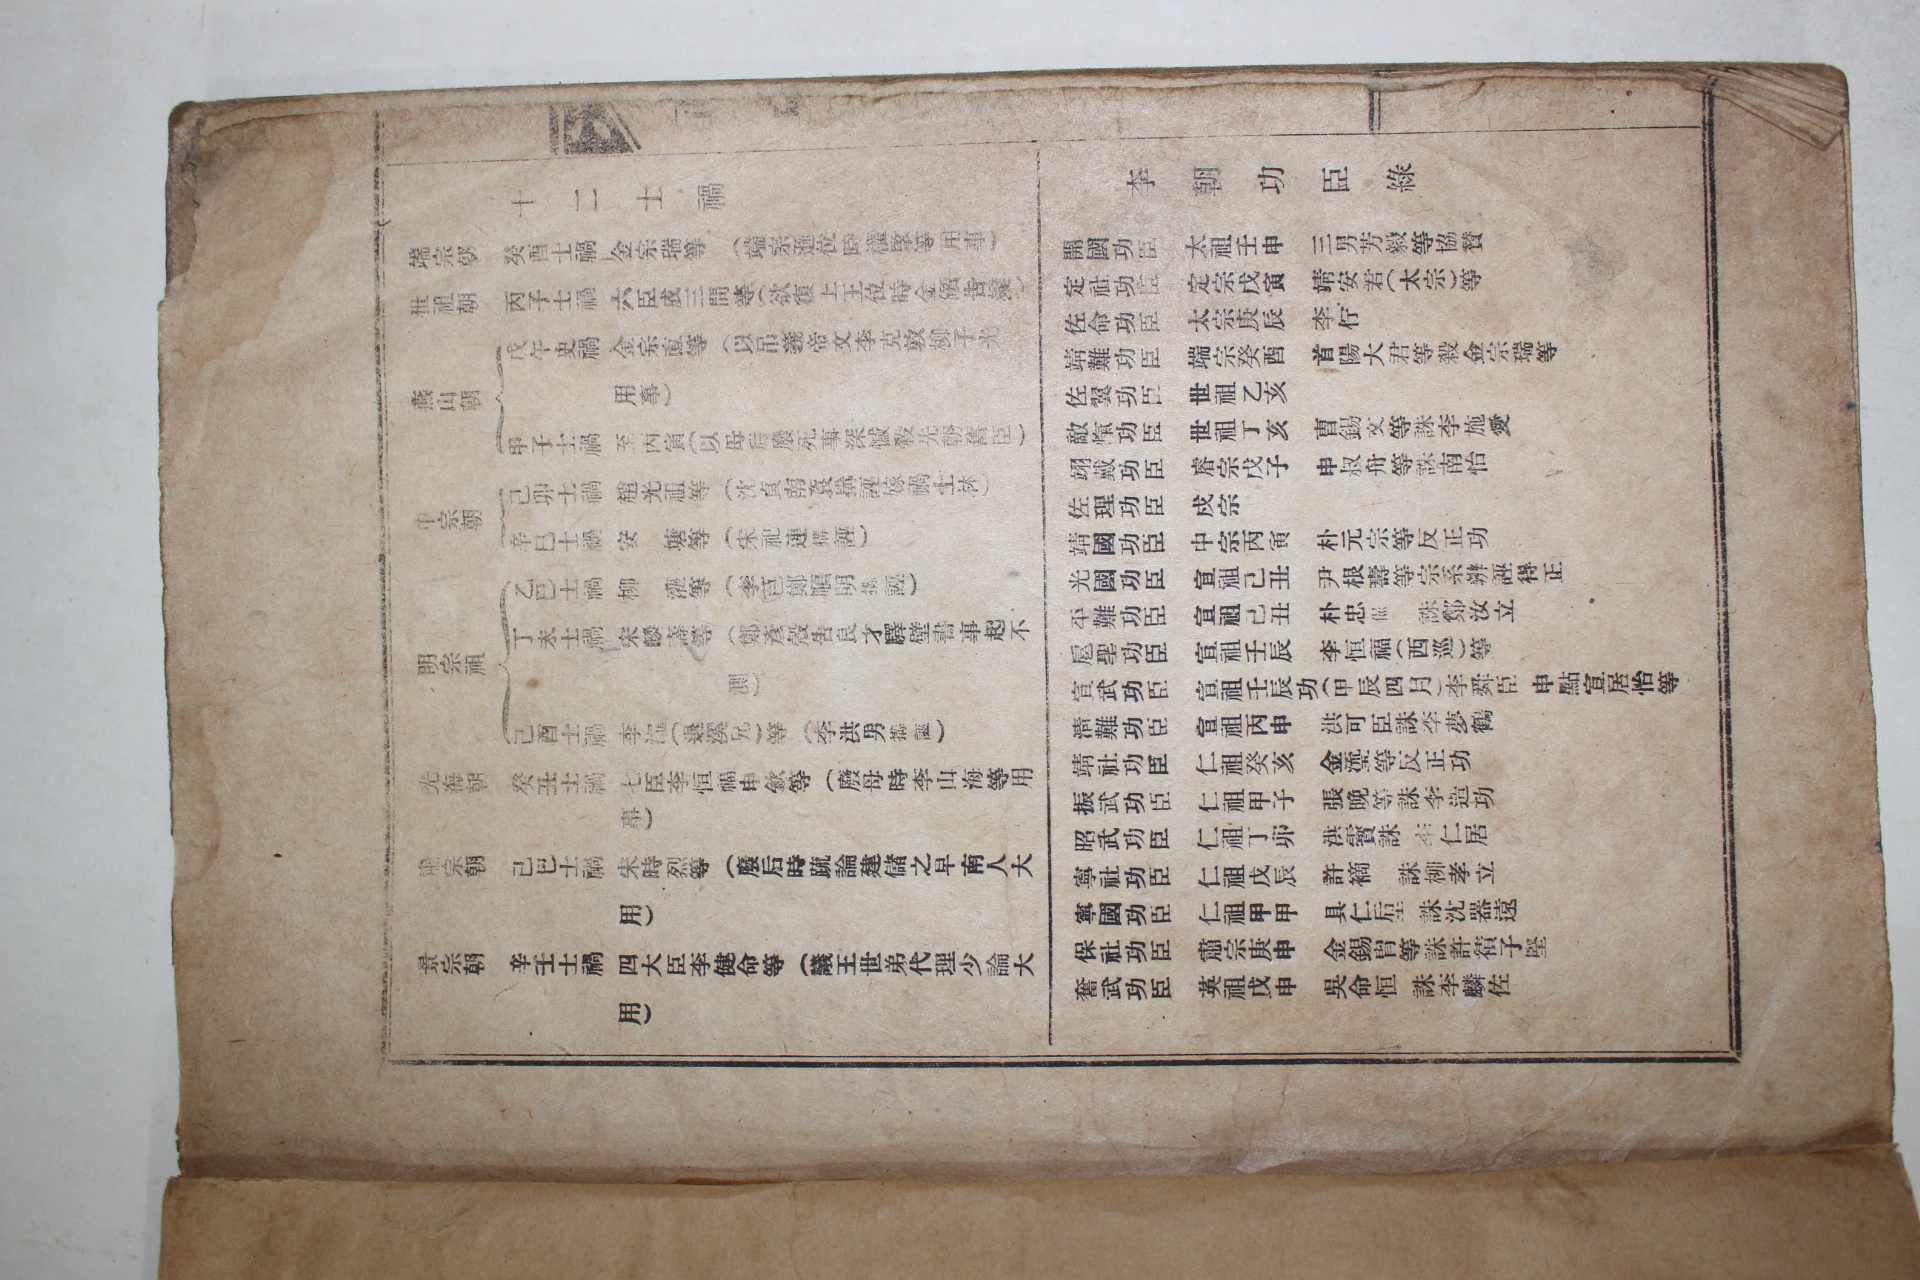 十二士禍
端宗朝 癸酉士禍 金宗瑞等 (端宗遜位時權擥等用事)
世祖朝 丙子士禍 六臣成三問等(欲復上王位時金礩告變)
燕山朝 戊午史禍 金宗直等 (以吊義帝文李克敦柳子光
用事)
甲子士禍 至丙寅(以母后廢死事深憾殺先朝舊臣)
中宗朝 己卯士禍 趙光祖等 (沈貞南袞構誣嫁禍士林)
辛巳士禍 安 塘等 (宋祀連構誣)
明宗祖 乙巳士禍 柳 灌等 (李芑鄭順明構誣)
丁未士禍 宋麟壽等 (鄭彦慤告良才驛壁書事起不
測)
己酉士禍 李瀣(退溪兄)等 (李洪男構誣)
光海朝 癸丑士禍 七臣李恒福申欽等 (廢母時李山海等用
事)
肅宗朝 己巳士禍 朱時烈等 (廢后時疏論建儲之早南人大
用)
景宗朝 辛壬士禍 四大臣李健命等 (議王世弟代理少論大
用)
李朝功臣綠
開國功臣 太祖壬申 三男芳毅等協賛
定社功臣 定宗戊寅 靖安君(太宗)等
佐命功臣 太宗庚辰 李佇
靖難功臣 端宗癸酉 首陽大君等殺金宗瑞等
佐翼功臣 世祖乙亥
敵愾功臣 世祖丁亥 曺錫文等誅李施愛
翊戴功臣 睿宗戊子 申叔舟等誅南怡
佐理功臣 成宗
靖國功臣 中宗丙寅 朴元宗等反正功
光國功臣 宣祖己丑 尹根壽等宗系辨誣得正
平難功臣 宣祖己丑 朴忠侃 誅鄭汝立
扈聖功臣 宣祖壬辰 李恒福(西巡)等
宣武功臣 宣祖壬辰功(甲辰四月)李舜臣 申點宣居怡等
淸難功臣 宣祖丙申 洪可臣誅李夢鶴
靖社功臣 仁祖癸亥 金瑬等反正功
振武功臣 仁祖甲子 張晚等誅李适功
昭武功臣 仁祖丁卯 洪靌誅李仁居
寧社功臣 仁祖戊辰 許𥛚 誅柳孝立
寧國功臣 仁祖甲申 具仁垕 誅沈器遠
保社功臣 肅宗庚申 金錫胄等誅許積子堅
奮武功臣 英祖戊申 吳命恒 誅李麟佐